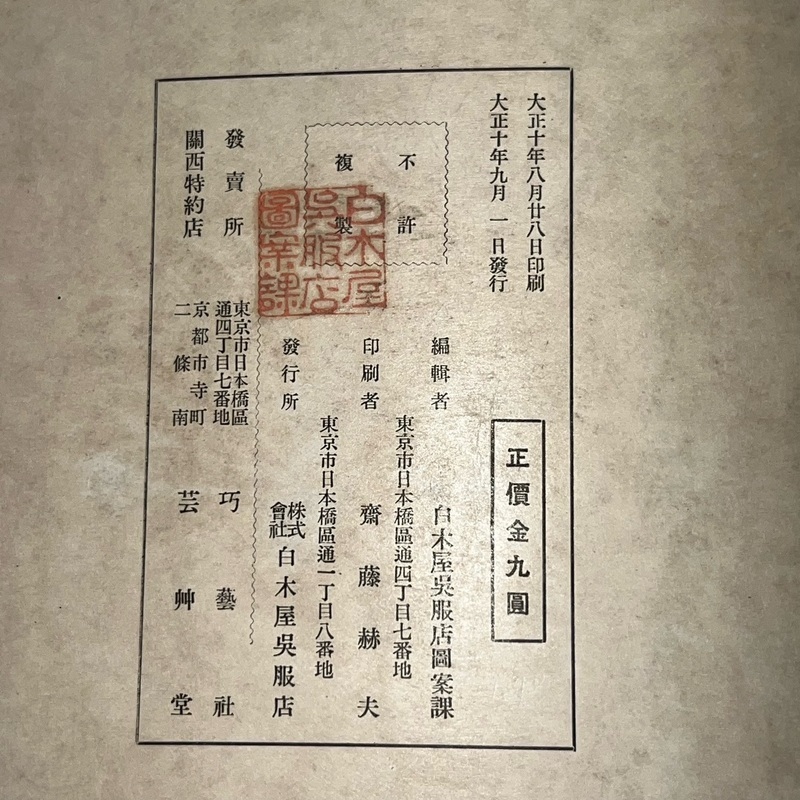 大正十年八月廿八日印刷
大正十年九月一日發行
正價金九圓
不許
複製
白木屋
吳服店
圖案課
編輯者
白木屋吳服店圖案課
東京市日本橋區通四丁目七番地
印刷者
齋藤赫夫
東京市日本橋區通一丁目八番地
發行所
株式會社白木屋吳服店
發賣所
東京市日本橋區
通四丁目七番地
巧藝社
關西特約店
京都市寺町
二條南
芸艸堂